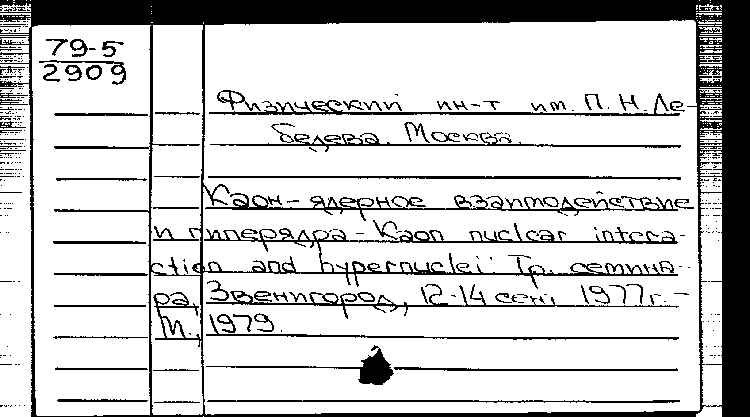 79-5
2909
Физический ин-т им. П. Н. Ле-
бедева. Москва.
Каон-ядерное взаимодействие
и гиперядра - Kaon nuclear intera-
ction and hypernuclei: Тр. семина-
ра, Звенигород, 12-14 сент. 1977 г. -
М., 1979.